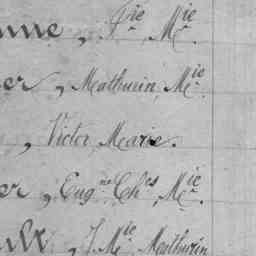 nne, Fie Mie
er, Mathurin, Mie
, Victor, Marie.
er, Eugne Chles, Mie
J. Mie Mathurin